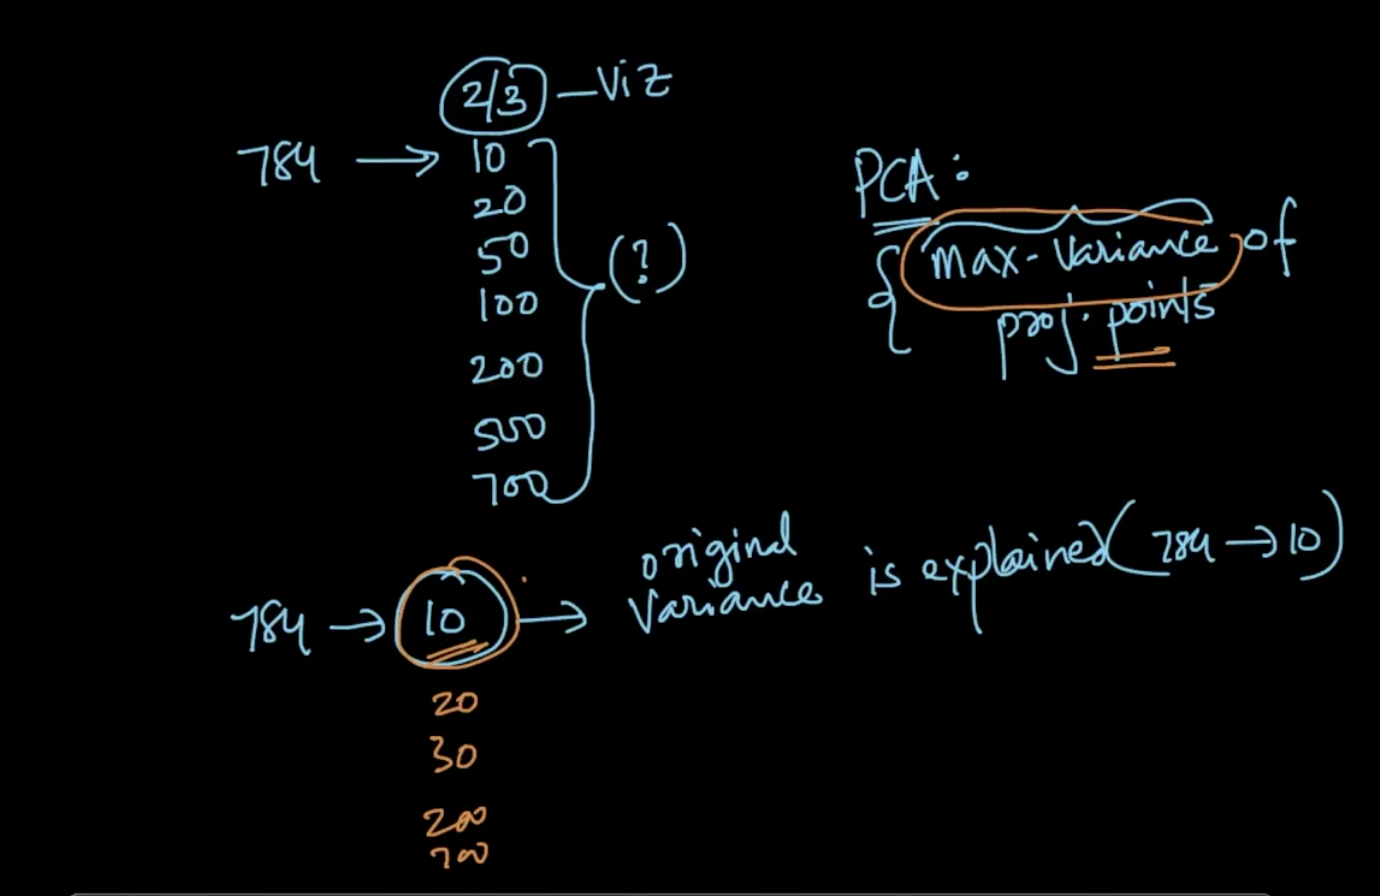 2/3 – Viz
784 → 10
20
50
100
200
500
700
(?)
PCA:
{ max-variance of
proj. points
784 → 10 → original variance is explained (784 → 10)
20
30
200
700